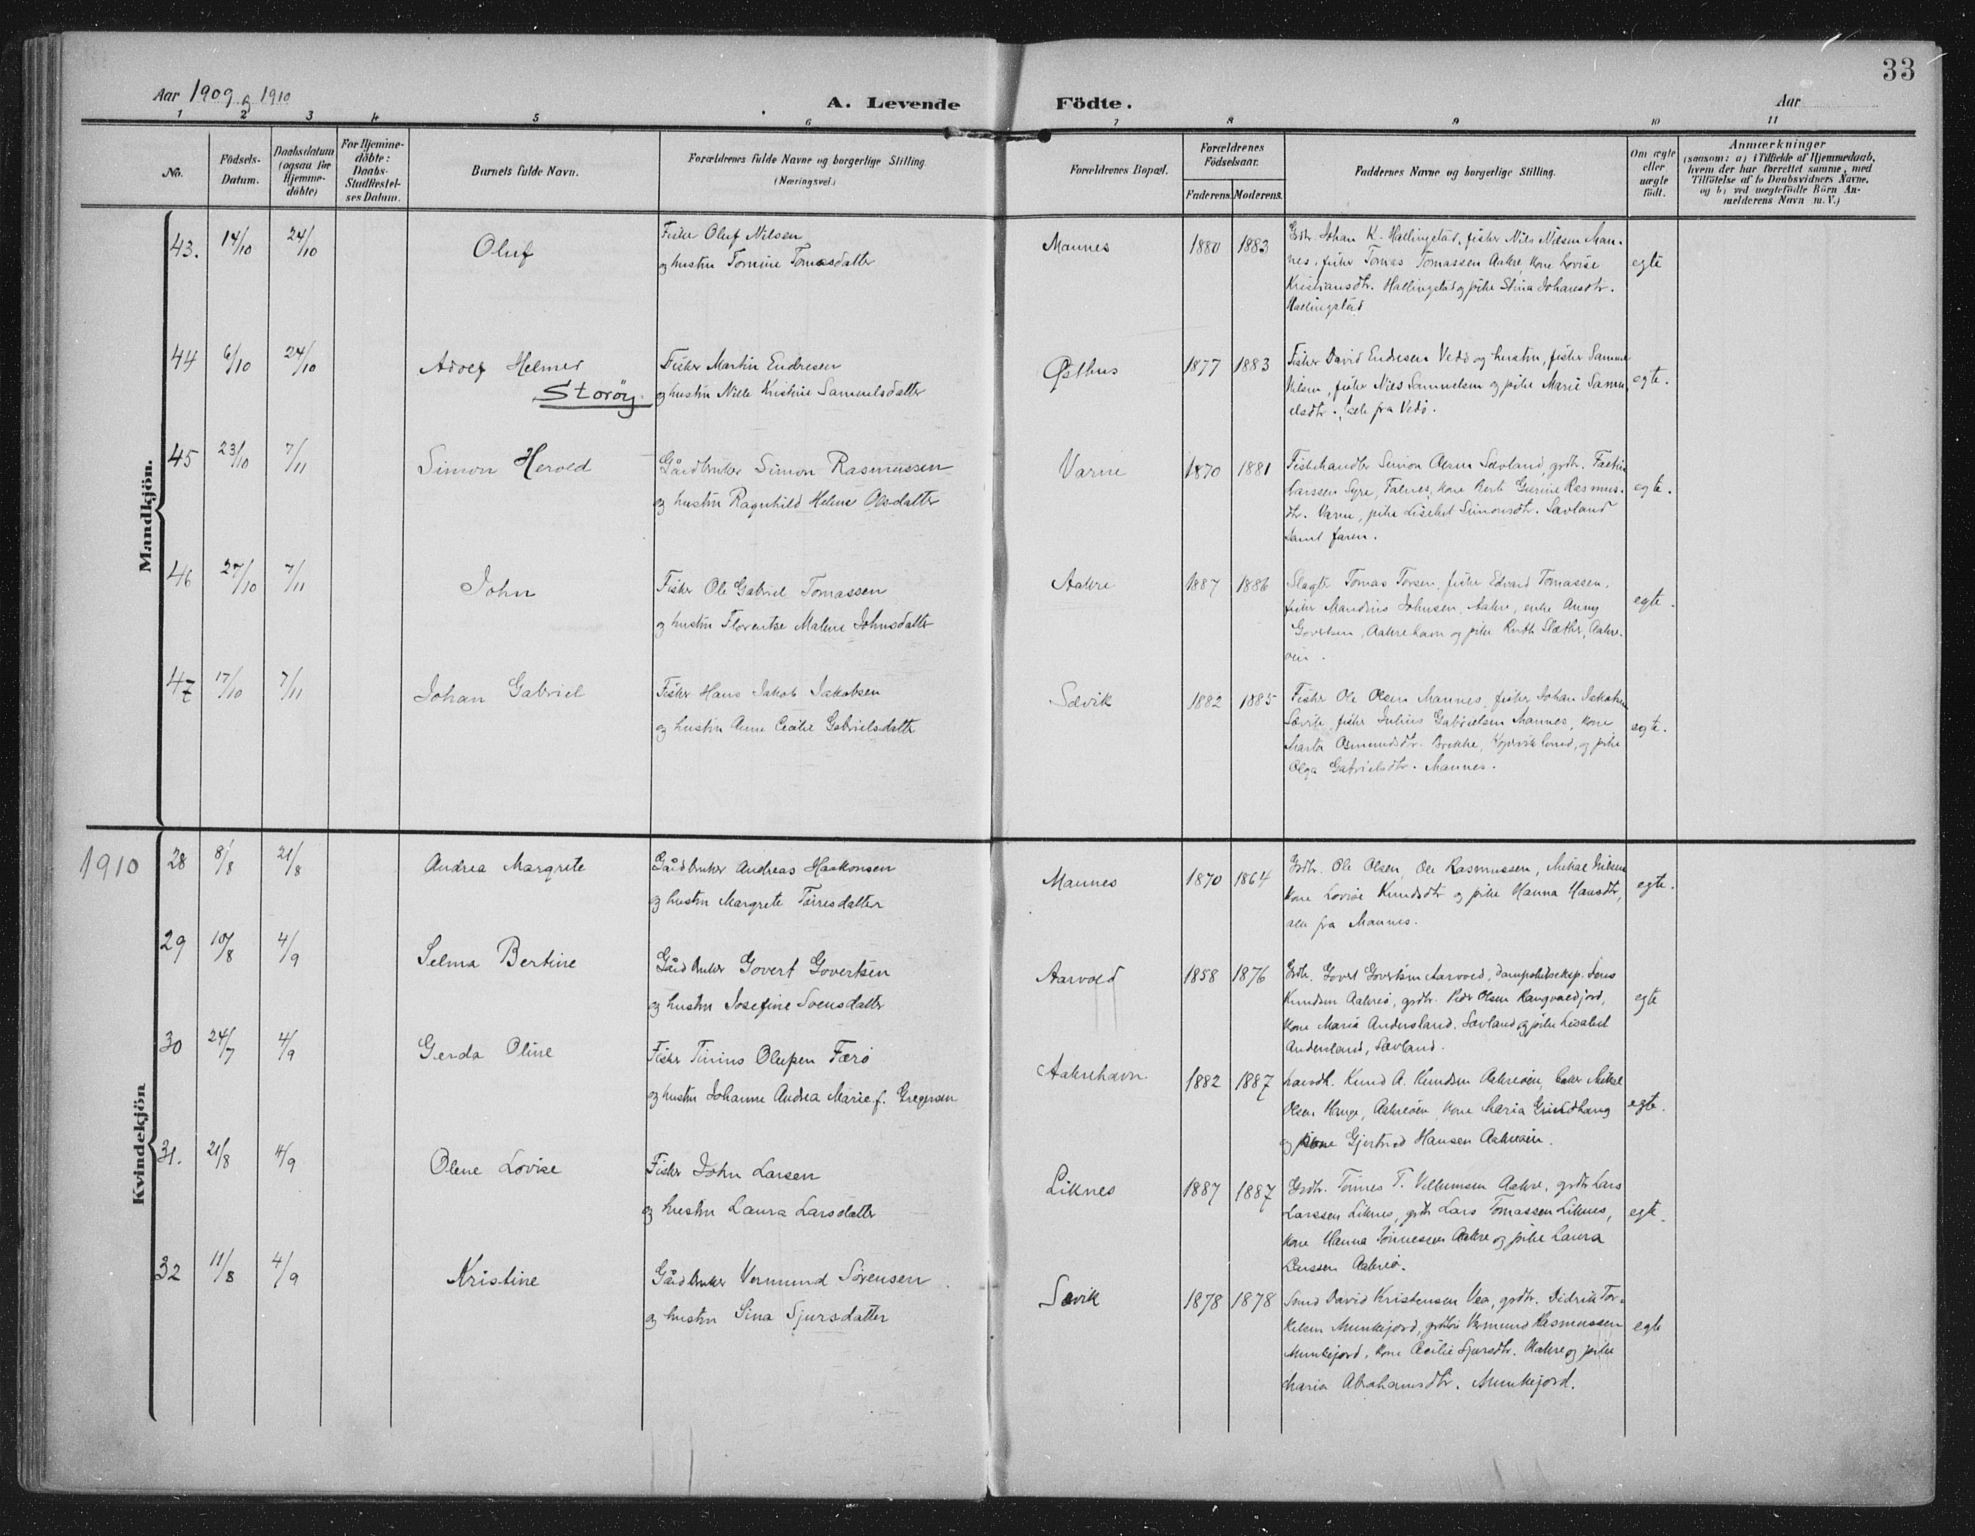 33
Aar 1909 og 1910
A. Levende Födte.
Aar
1 2 3 4 5 6 7 8 9 10 11
No.
Födsels-Datum.
Daabsdatum (ogsaa for Hjemme-döbte)
For Hjemme-döbte: Daabs-Stadfæstel-ses Datum.
Barnets fulde Navn.
Forældrenes fulde Navne og borgerlige Stilling. (Næringsvei.)
Forældrenes Bopæl.
Forældrenes Födselsaar.
Faderens. Moderens.
Faddernes Navne og borgerlige Stilling.
Om ægte eller uægte födt.
Anmærkninger
(saasom: a) i Tilfælde af Hjemmedaab,
hvem der har forrettet samme, med
Tilföielse af to Daabsvidners Navne,
og b) ved uægtefödte Börn An-
melderens Navn m. V.)
Mandkjön.
43. 14/10 24/10 Oluf
Fisker Oluf Nilsen
og hustru Tomine Tomasdatter
Mannes 1880 1883
Grdbr. Johan K. Hallingstad, fisker Nils Nilsen Man-
nes, fisker Tomas Tomassen Aakre, kone Lovise
Kristiansdtr. Hallingstad og pike Stina Johansdtr.
Hallingstad
egte
44 6/10 24/10 Adolf Helmer
Storöy.
Fisker Martin Endresen
og hustru Nille Kristine Samuelsdatter
Østhus 1877 1883
Fisker David Endresen Vedö og hustru, fisker
fisker Nils Samuelsen og pike Marie Samu-
elsdtr., alle fra Vedö.
egte.
45 23/10 7/11 Simon Herold
Gårdbruker Simon Rasmussen
og hustru Ragnhild Helene Olsdatter
Varne 1870 1881
Fiskehandler Simon Olsen Sævland, grdbr.
Larssen Syre, Falnes, kone Berte Gurine Rasmus-
dtr. Varne, pike Lisebet Simonsdtr. Sævland
samt faren.
egte.
46 27/10 7/11 John
Fisker Ole Gabriel Tomassen
og hustru Florentse Malene Johnsdatter
Aakre 1887 1886
Slagter Tomas Torsen, fisker Edvard Tomassen,
fisker Mandius Johnsen, Aakre, enke Anny
Govertsen, Aakrehavn og pike Ruth Slæthe, Aakre-
öen.
egte.
47 17/10 7/11 Johan Gabriel
Fisker Hans Jakob Jakobsen
og hustru Anne Cecilie Gabrielsdatter
Sævik 1882 1885
Fisker Ole Olsen Mannes, fisker Johan Jakobsen
Sævik, fisker Julius Gabrielsen Mannes, kone
Marta Osmundsdtr. Brekke, Kopervik, og pike
Olga Gabrielsdtr. Mannes.
egte.
1910
Kvindekjön
28 8/8 21/8 Andrea Margrete
Gårdbruker Andreas Haakonsen
og hustru Margrete Tørresdatter
Mannes 1870 1864
Grdbr. Ole Olsen, Ole Rasmussen, Mikal
kone Lovise Knudsdtr og pike Hanna Hansdtr,
alle fra Mannes.
egte.
29 10/8 4/9 Selma Bertine
Gårdbruker Govert Govertsen
og hustru Josefine Svensdatter
Aarvold 1858 1876
Grdbr. Govert Govertsen Aarvold, dampskibseksp. Jens
Knudsen Aakreö, grdbr. Peder Olsen Rangvaldjord,
kone Maria Andersland, Sævland og pike Lisabet
Andersland, Sævland.
egte
30 24/7 4/9 Gerda Oline
Fisker Tinius Olufsen Færö
og hustru Johanne Andrea Marie f. Gregersen
Aakrehavn 1882 1887
Landh. Knud A. Knudsen Aakreöen, baker Mikal
Olsen Hauge, Aakreöen, kone Maria Grindhaug
og kone Gjertrud Hansen Aakreöen.
egte.
31. 21/8 4/9 Olene Lovise
Fisker John Larsen
og hustru Laura Larsdatter
Liknes 1887 1887
Grdbr. Tönnes T. Villumsen Aakre, grdbr Lars
Larssen Liknes, grdbr Lars Tomassen Liknes,
kone Hanna Tönnesen Aakre og pike Laura
Larssen Aakreö.
egte.
32 11/8 4/9 Kristine
Gårdbruker Vermund Sörensen
og hustru Sina Sjursdatter
Sævik 1878 1878
Smed David Kristensen Vea, grdbr. Didrik Tor-
kelsen Munkejord, Vermund Rasmussen
Munkejord, kone Cecilie Sjursdtr. Aakre og pike
Maria Abrahamsdtr. Munkejord.
egte